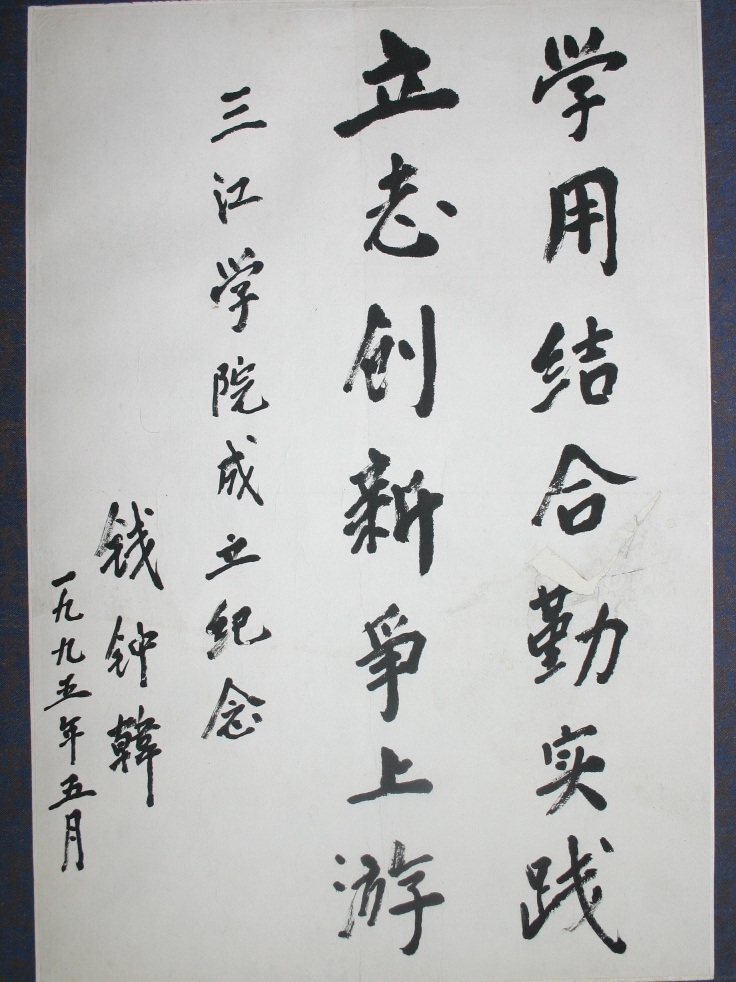 学用结合勤实践
立志创新争上游
三江学院成立纪念
钱钟韩
一九九五年五月